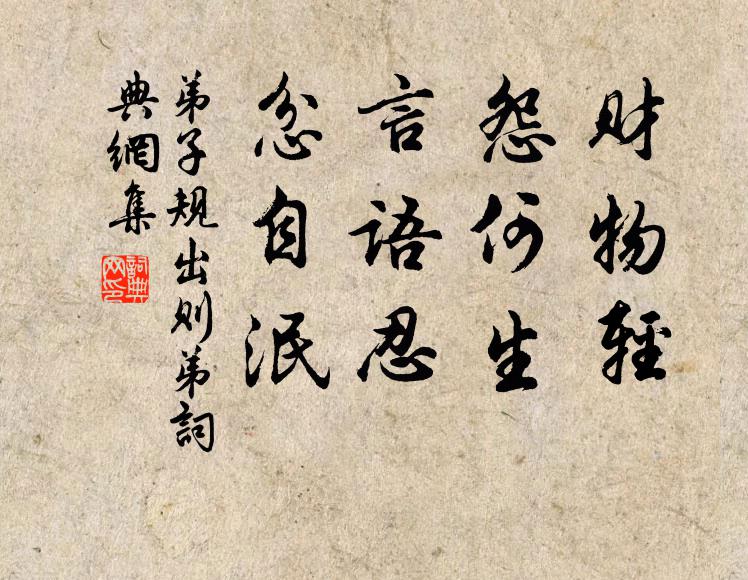 财物輕
怨何生
言語忍
忿自泯
弟子規出则弟詞
典網集
詞典
网印